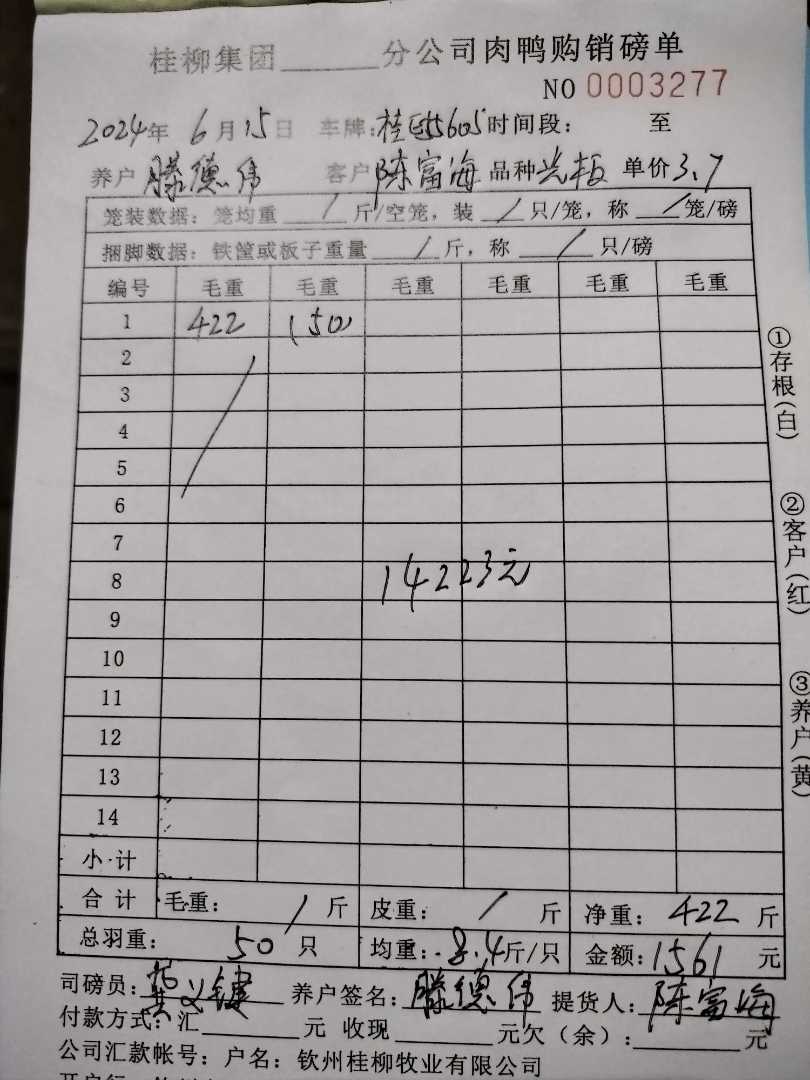 桂柳集团______分公司肉鸭购销磅单
NO 0003277
2024年 6月15日 车牌: 时间段: 至
养户 滕德伟 客户 陈富海 品种 光板 单价 3.7
笼装数据: 笼均重 / 斤/空笼, 装 / 只/笼, 称 / 笼/磅
捆脚数据: 铁筐或板子重量 / 斤, 称 / 只/磅
编号 毛重 毛重 毛重 毛重 毛重 毛重
1 422 (50)
2
3
4
5
6
7
8 14223元
9
10
11
12
13
14
小计
合计 毛重: / 斤 皮重: / 斤 净重: 422 斤
总羽重: 50 只 均重: 8.4 斤/只 金额: 1561 元
司磅员: 养户签名: 滕德伟 提货人: 陈富海
付款方式: 汇______元 收现______元欠(余):______元
公司汇款帐号: 户名: 钦州桂柳牧业有限公司
①存根(白)
②客户(红)
③养户(黄)